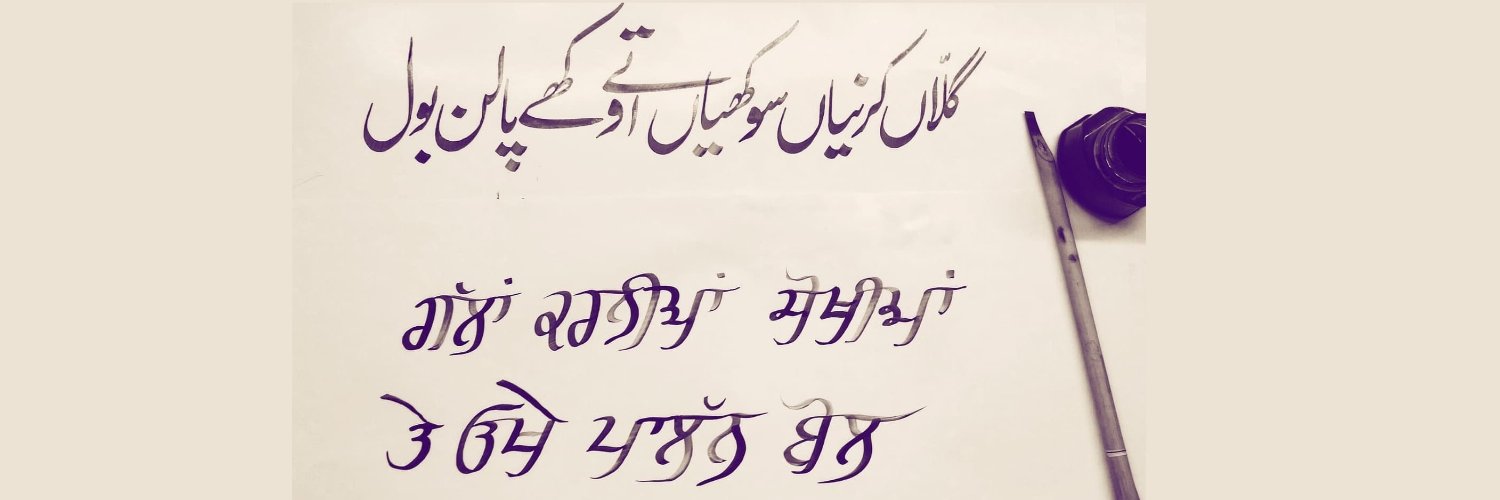 گلّاں کرنیاں سوکھیاں تے اوکھے پالن بول
ਗੱਲਾਂ ਕਰਨੀਆਂ ਸੋਖੀਆਂ
ਤੇ ਓਖੇ ਪਾਲੱਨ ਬੋਲ